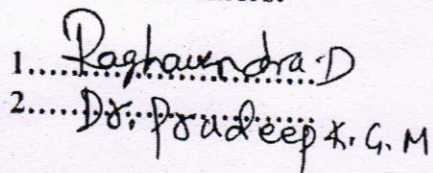 1. Raghavendra.D
2. Dr. Pradeep K. G. M